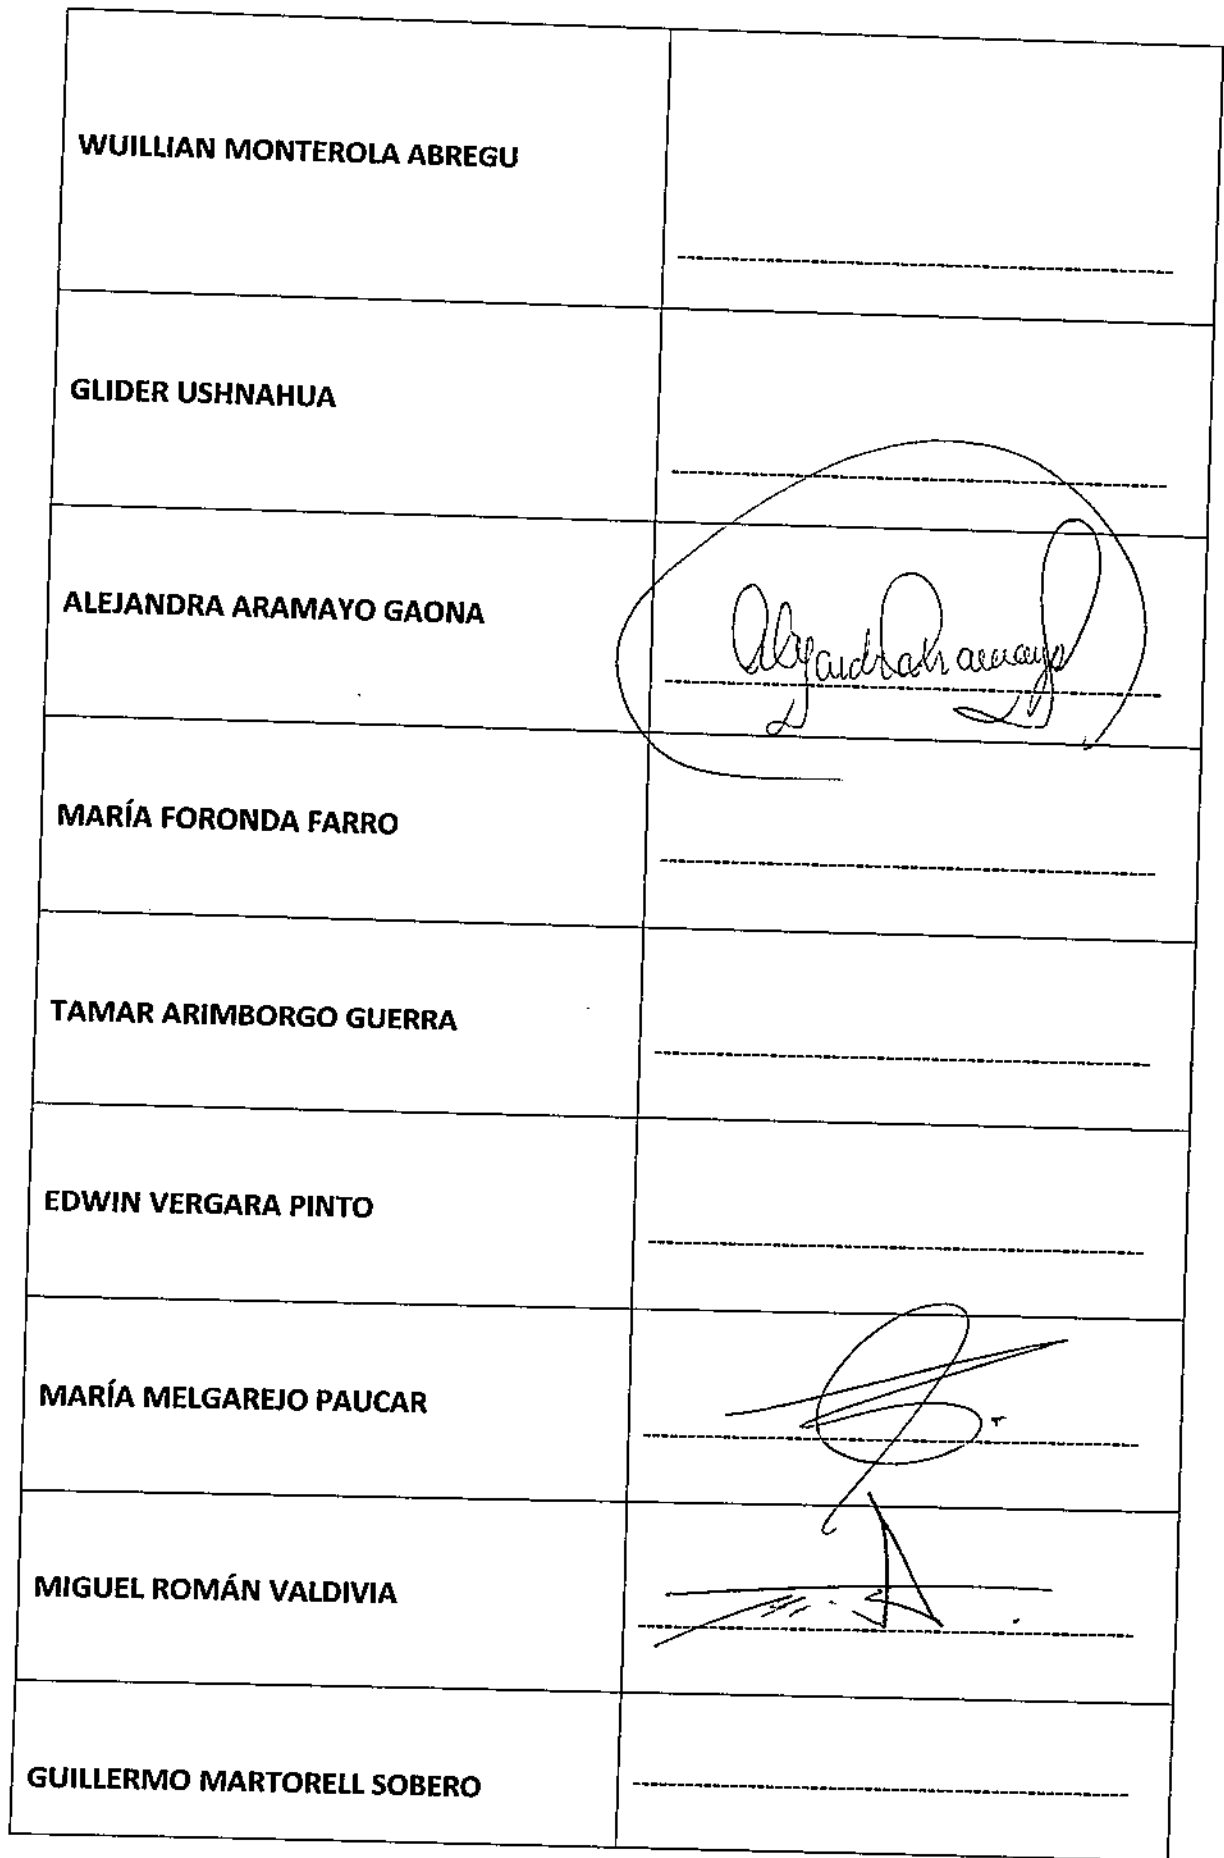 WUILLIAN MONTEROLA ABREGU
GLIDER USHNAHUA
ALEJANDRA ARAMAYO GAONA
MARÍA FORONDA FARRO
TAMAR ARIMBORGO GUERRA
EDWIN VERGARA PINTO
MARÍA MELGAREJO PAUCAR
MIGUEL ROMÁN VALDIVIA
GUILLERMO MARTORELL SOBERO